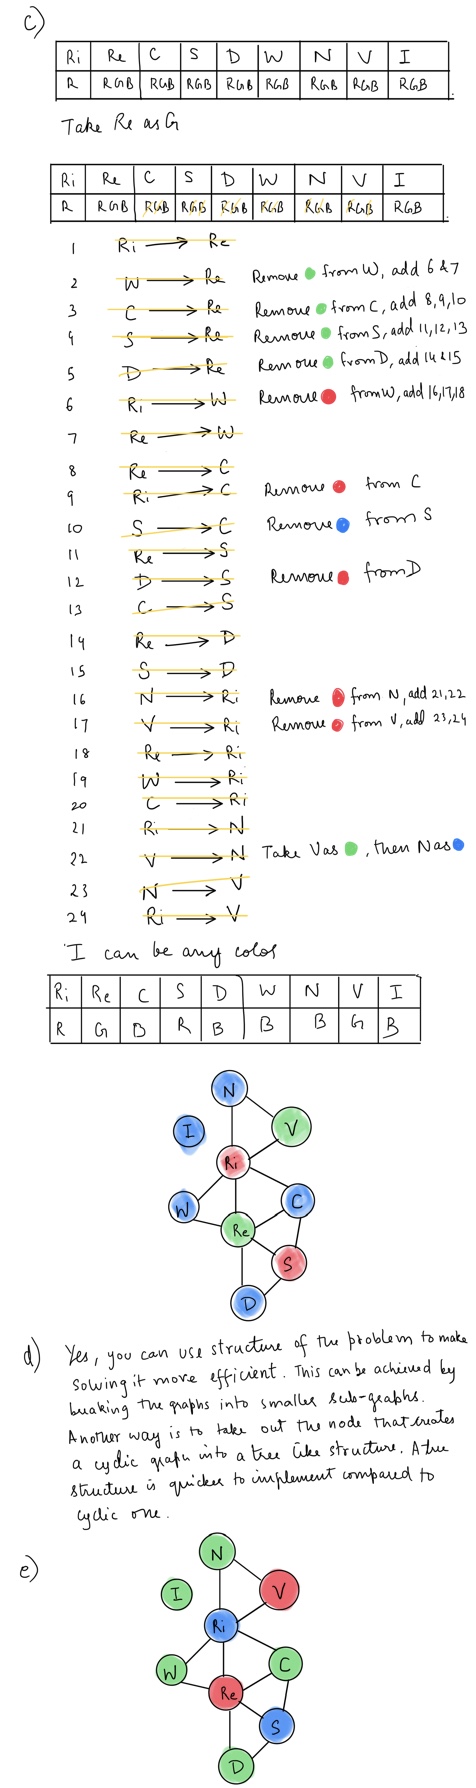 c)
Ri Re C S D W N V I
R RGB RGB RGB RGB RGB RGB RGB RGB
Take Re as G
Ri Re C S D W N V I
R RGB RGB RGB RGB RGB RGB RGB RGB
1 Ri → Re
2 W → Re Remove from W, add 6 & 7
3 C → Re Remove from C, add 8, 9, 10
4 S → Re Remove from S, add 11, 12, 13
5 D → Re Remove from D, add 14 & 15
6 Ri → W Remove from W, add 16, 17, 18
7 Re → W
8 Re → C
9 Ri → C Remove from C
10 S → C Remove from S
11 Re → S
12 D → S Remove from D
13 C → S
14 Re → D
15 S → D
16 N → Ri Remove from N, add 21, 22
17 V → Ri Remove from V, add 23, 24
18 Re → Ri
19 W → Ri
20 C → Ri
21 Ri → N
22 V → N Take V as , then N as
23 N → V
24 Ri → V
I can be any color
Ri Re C S D W N V I
R G B R B B B G B
N
I V
Ri
W C
Re
S
D
d) Yes, you can use structure of the problem to make
solving it more efficient. This can be achieved by
breaking the graphs into smaller sub-graphs.
Another way is to take out the node that creates
a cyclic graph into a tree like structure. A tree
structure is quicker to implement compared to
cyclic one.
e)
N
I V
Ri
W C
Re
S
D